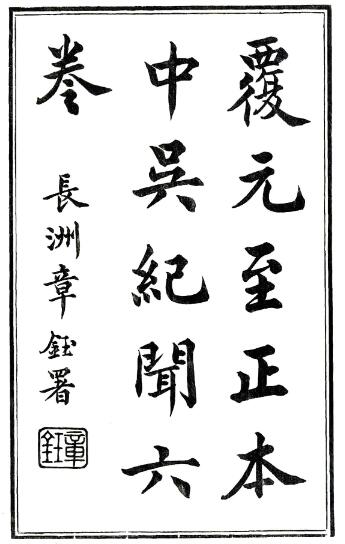 覆元至正本
中吳紀聞六
卷
長洲章鈺署
章鈺